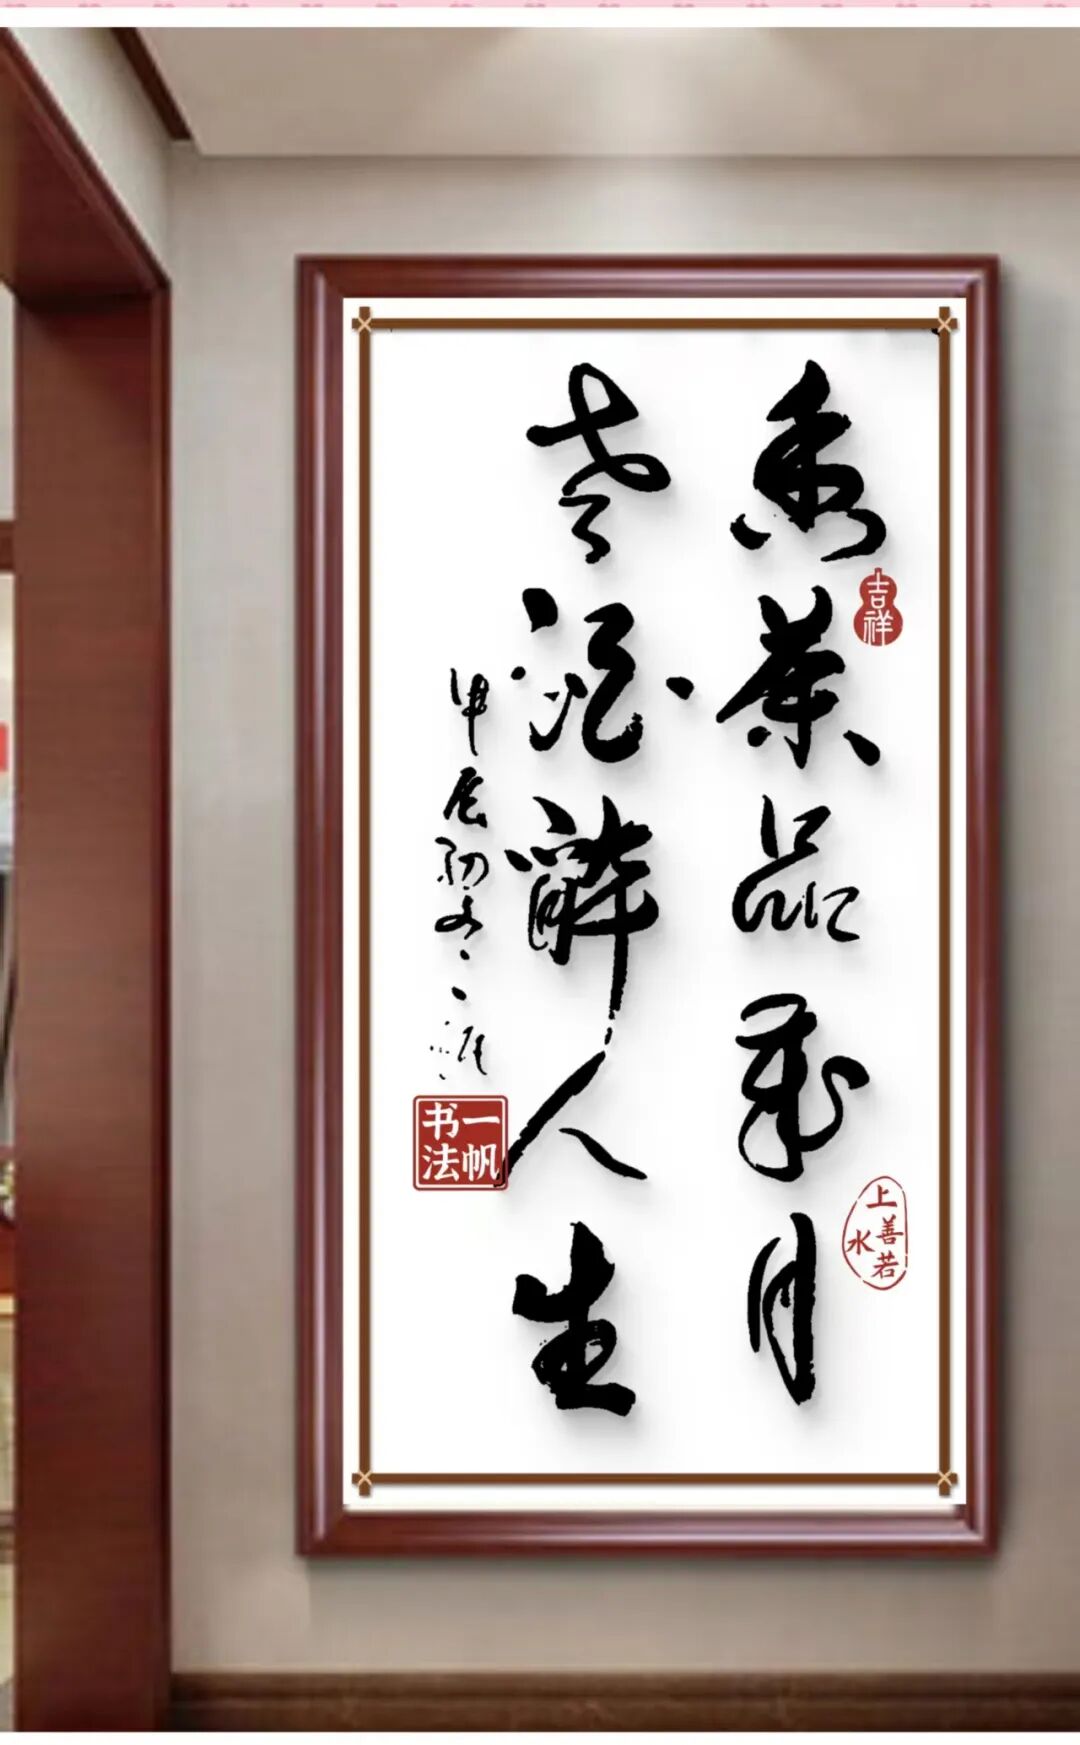 香茶品歲月
吉祥
上善若水
老酒醉人生
甲辰初冬一帆
一帆书法